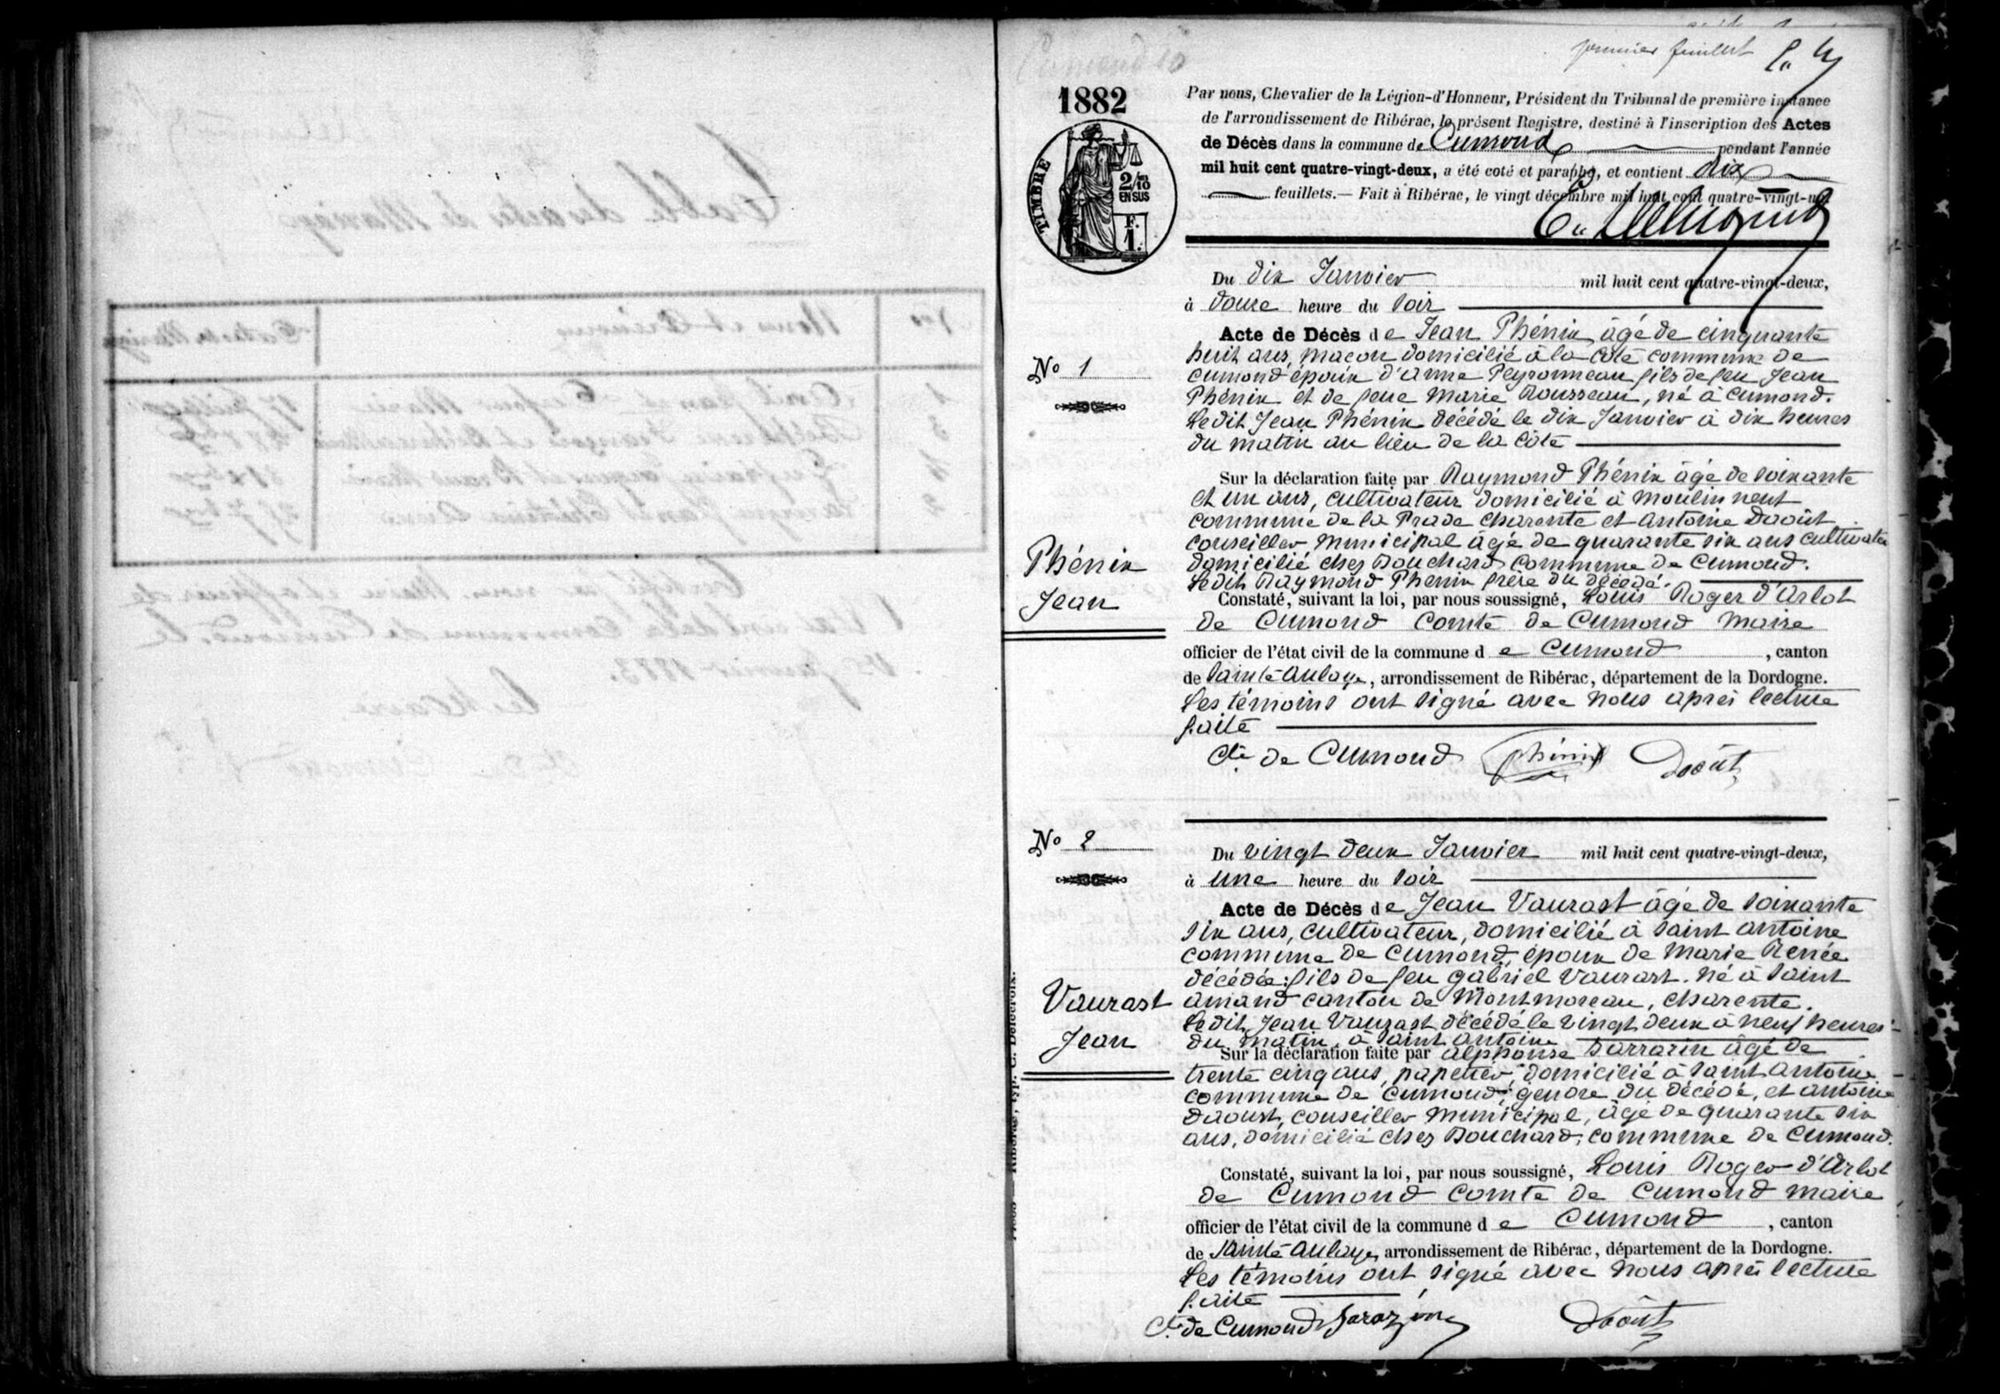 premier feuillet
1882
TIMBRE
2/10
EN SUS
F.
1.
Par nous, Chevalier de la Légion-d'Honneur, Président du Tribunal de première instance
de l'arrondissement de Ribérac, le présent Registre, destiné à l'inscription des Actes
de Décès dans la commune de Cumond pendant l'année
mil huit cent quatre-vingt-deux, a été coté et paraphé, et contient dix
feuillets. — Fait à Ribérac, le vingt décembre mil huit cent quatre-vingt-un.
Du dix Janvier mil huit cent quatre-vingt-deux,
à douze heure du soir
Acte de Décès de Jean Phénix, âgé de cinquante
huit ans, maçon domicilié à la côte commune de
Cumond époux d'anne Peyronneau fils de feu Jean
Phénix et de feue Marie Rousseau, né à Cumond.
Ledit Jean Phénix décédé le dix Janvier à dix heures
du matin au lieu de la côte
Sur la déclaration faite par Raymond Phénix âgé de soixante
et un ans, cultivateur domicilié à Moulin neuf
commune de la Prade charente et antoine Daoût
conseiller municipal âgé de quarante six ans cultivate
domicilié chez Bouchard commune de Cumond.
Ledit Raymond Phénix frère du décédé.
Constaté, suivant la loi, par nous soussigné, Louis Roger d'Arlot
de Cumond Comte de Cumond Maire
officier de l'état civil de la commune de Cumond, canton
de Sainte Aulaye, arrondissement de Ribérac, département de la Dordogne.
Les témoins ont signé avec nous après lecture
faite
Cte de Cumond Phénix Daoût
No 1
Phénix
Jean
No 2
Vaurast
Jean
Du vingt deux Janvier mil huit cent quatre-vingt-deux,
à une heure du soir
Acte de Décès de Jean Vaurast âgé de soixante
six ans, cultivateur, domicilié à Saint antoine
commune de Cumond, époux de Marie Renée
décédée; fils de feu gabriel Vaurast. né à Saint
amand canton de Montmoreau, charente.
Ledit Jean Vaurast décédé le vingt deux à neuf heures
du matin, à Saint antoine
Sur la déclaration faite par alphonse Sarrazin âgé de
trente cinq ans, papetier, domicilié à Saint antoine
commune de Cumond, gendre du décédé, et antoine
daoust, conseiller municipal, âgé de quarante six
ans, domicilié chez Bouchard, commune de Cumond.
Constaté, suivant la loi, par nous soussigné, Louis Roger d'Arlot
de Cumond Comte de Cumond Maire
officier de l'état civil de la commune de Cumond, canton
de Sainte Aulaye, arrondissement de Ribérac, département de la Dordogne.
Les témoins ont signé avec nous après lecture
faite
Cte de Cumond Sarazin Daoût
Ribérac, typ. C. Delecroix.